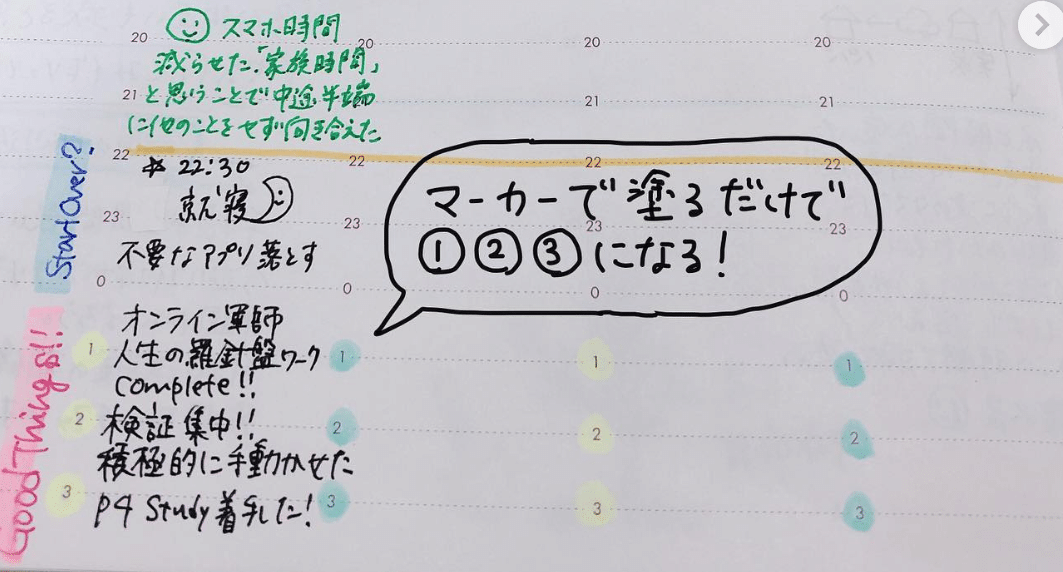 20 20 20 20
スマホ時間
減らせた.「家族時間」
21 21 21
と思うことで中途半端
に他のことをせず向き合えた
Start Over?
22 22 22 22
22:30
就寝
23 23 23 23
不要なアプリ落とす
0 0 0 0
マーカーで塗るだけで
①②③になる!
Good Things!!
オンライン軍師
1 人生の羅針盤ワーク 1 1 1
complete!!
2 検証集中!! 2 2 2
積極的に手動かせた
3 P4 Study着手した! 3 3 3